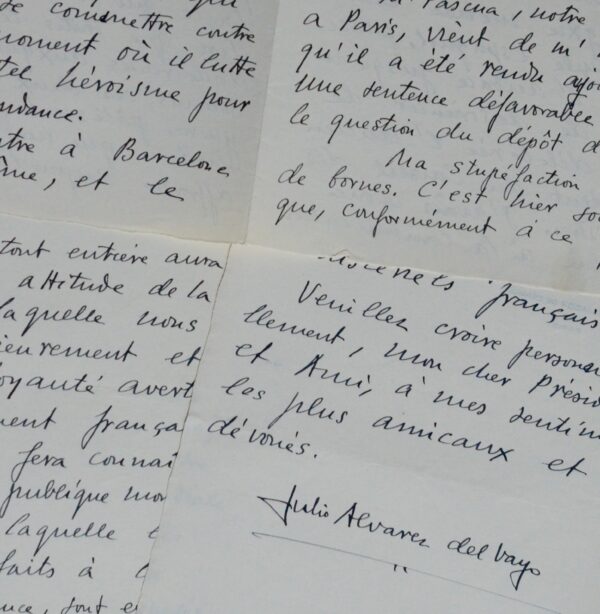 se commettre contre
moment où il lutte
tel héroïsme pour
ndance.
ntre à Barcelone
ême, et le
Mr Pascua, notre
a Paris, vient de m'
qu'il a été rendu
une sentence défavorable
le question du dépôt d
Ma stupéfaction
de bornes. C'est hier soi
que, conformément à ce
tout entière aura
attitude de la
laquelle nous
ieurement et
oyauté avert
ment frança
fera connai
publique mon
laquelle
faits à
nce, sont e
français
Veuillez croire personne
llement, mon cher Présid
et Ami, à mes sentim
les plus amicaux et
dévoués.
Julio Alvarez del Vayo